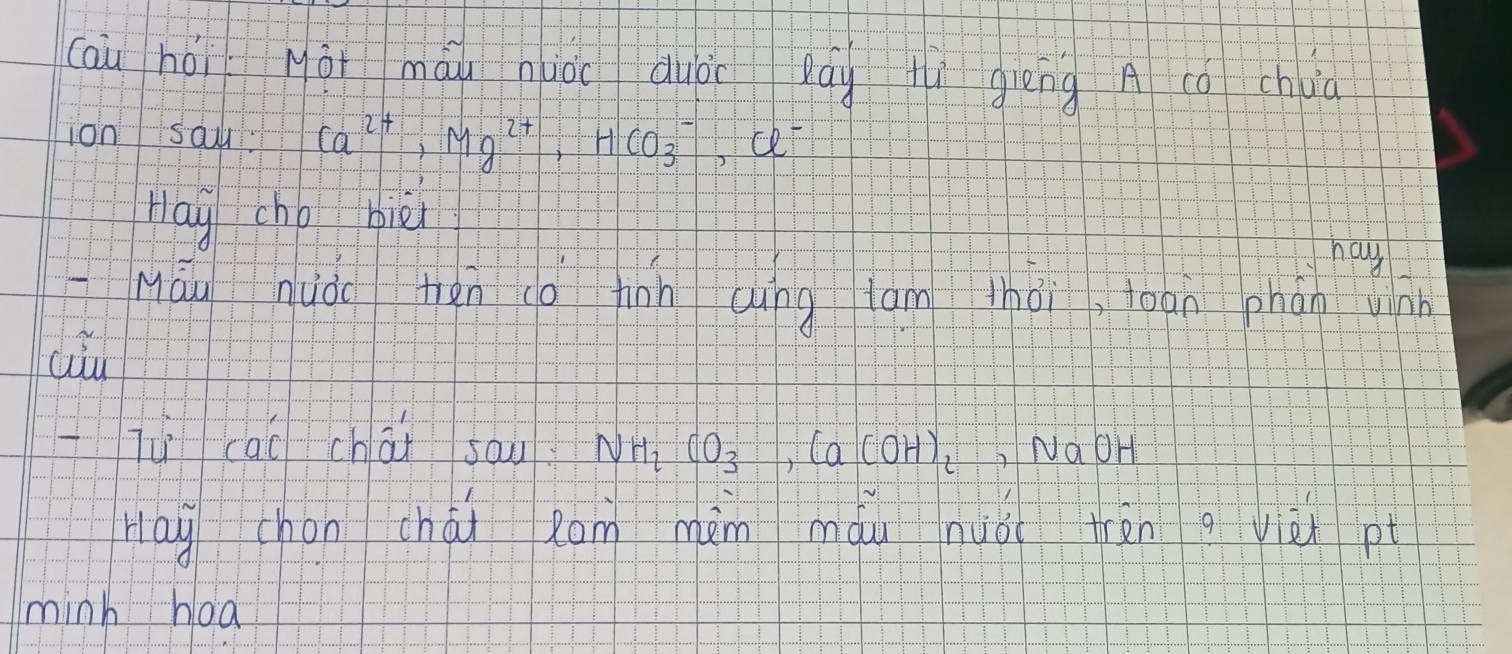 Câu hỏi: Một mẫu nước được lấy từ giếng A có chứa
ion sau: Ca²⁺, Mg²⁺, HCO₃⁻, Cl⁻
Hãy cho biết
hay
- Mẫu nước trên có tính cứng tạm thời, toàn phần vĩnh
cửu
- Từ các chất sau: NH₂CO₃, Ca(OH)₂, NaOH
Hãy chọn chất làm mềm mẫu nước trên ? Viết pt
minh họa